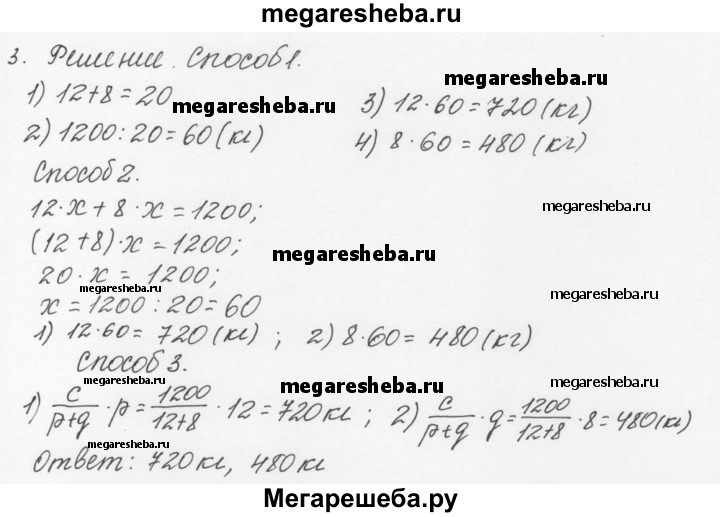 megaresheba.ru
3. Решение. Способ 1.
1) 12+8=20
megaresheba.ru
2) 1200:20=60 (кг)
megaresheba.ru
3) 12·60=720 (кг)
4) 8·60=480 (кг)
Способ 2.
12·x+8·x=1200;
megaresheba.ru
(12+8)·x=1200;
megaresheba.ru
20·x=1200;
megaresheba.ru
x=1200:20=60
1) 12·60=720 (кг); 2) 8·60=480 (кг)
Способ 3.
megaresheba.ru
megaresheba.ru
megaresheba.ru
1) c/(p+q)·p=1200/(12+8)·12=720 кг; 2) c/(p+q)·q=1200/(12+8)·8=480 (кг)
Ответ: 720 кг, 480 кг
Мегарешеба.ру